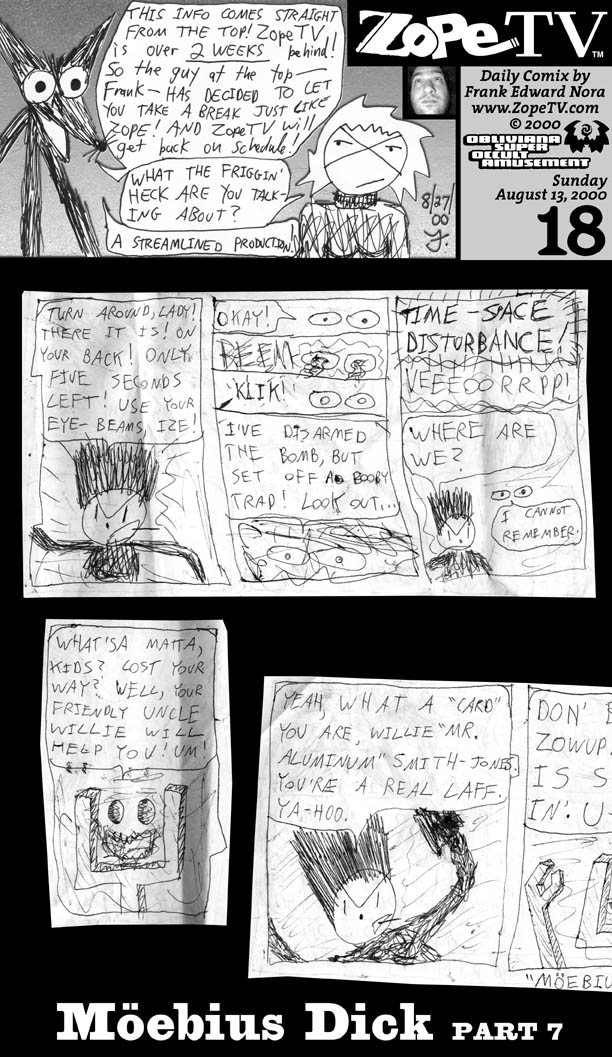 THIS INFO COMES STRAIGHT
FROM THE TOP! ZOPE TV
is over 2 WEEKS behind!
So the guy at the top—
Frank—HAS DECIDED TO LET
YOU TAKE A BREAK JUST LIKE
ZOPE! AND ZopeTV will
get back on schedule!
WHAT THE FRIGGIN'
HECK ARE YOU TALK-
ING ABOUT?
A STREAMLINED PRODUCTION!
8/27/
00
J.
ZOPE TV™
Daily Comix by
Frank Edward Nora
www.ZopeTV.com
© 2000
OBLIVIANA
SUPER
OCCULT
AMUSEMENT
Sunday
August 13, 2000
18
TURN AROUND, LADY!
THERE IT IS! ON
YOUR BACK! ONLY
FIVE SECONDS
LEFT! USE YOUR
EYE-BEAMS, IZE!
OKAY!
BEEM
KLIK!
I'VE DISARMED
THE BOMB, BUT
SET OFF A BOOBY
TRAP! LOOK OUT...
TIME-SPACE
DISTURBANCE!
VEEEOORRPP!
WHERE ARE
WE?
I CANNOT
REMEMBER.
WHAT'SA MATTA,
KIDS? LOST YOUR
WAY? WELL, YOUR
FRIENDLY UNCLE
WILLIE WILL
HELP YOU! UM!
YEAH, WHAT A "CARD"
YOU ARE, WILLIE "MR.
ALUMINUM" SMITH-JONES.
YOU'RE A REAL LAFF.
YA-HOO.
DON'
ZOWUP.
IS S
IN'. U
"MÖEBIU
Möebius Dick PART 7